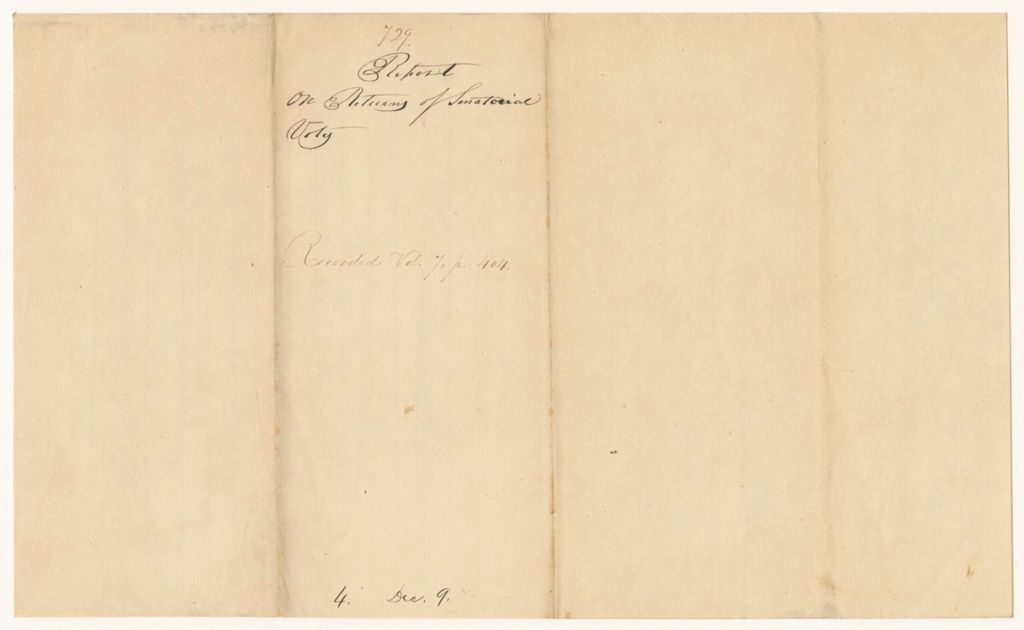 729.
Report
On Returns of Senatorial
Votes
Recorded Vol. 7, p. 404.
4. Dec. 9.